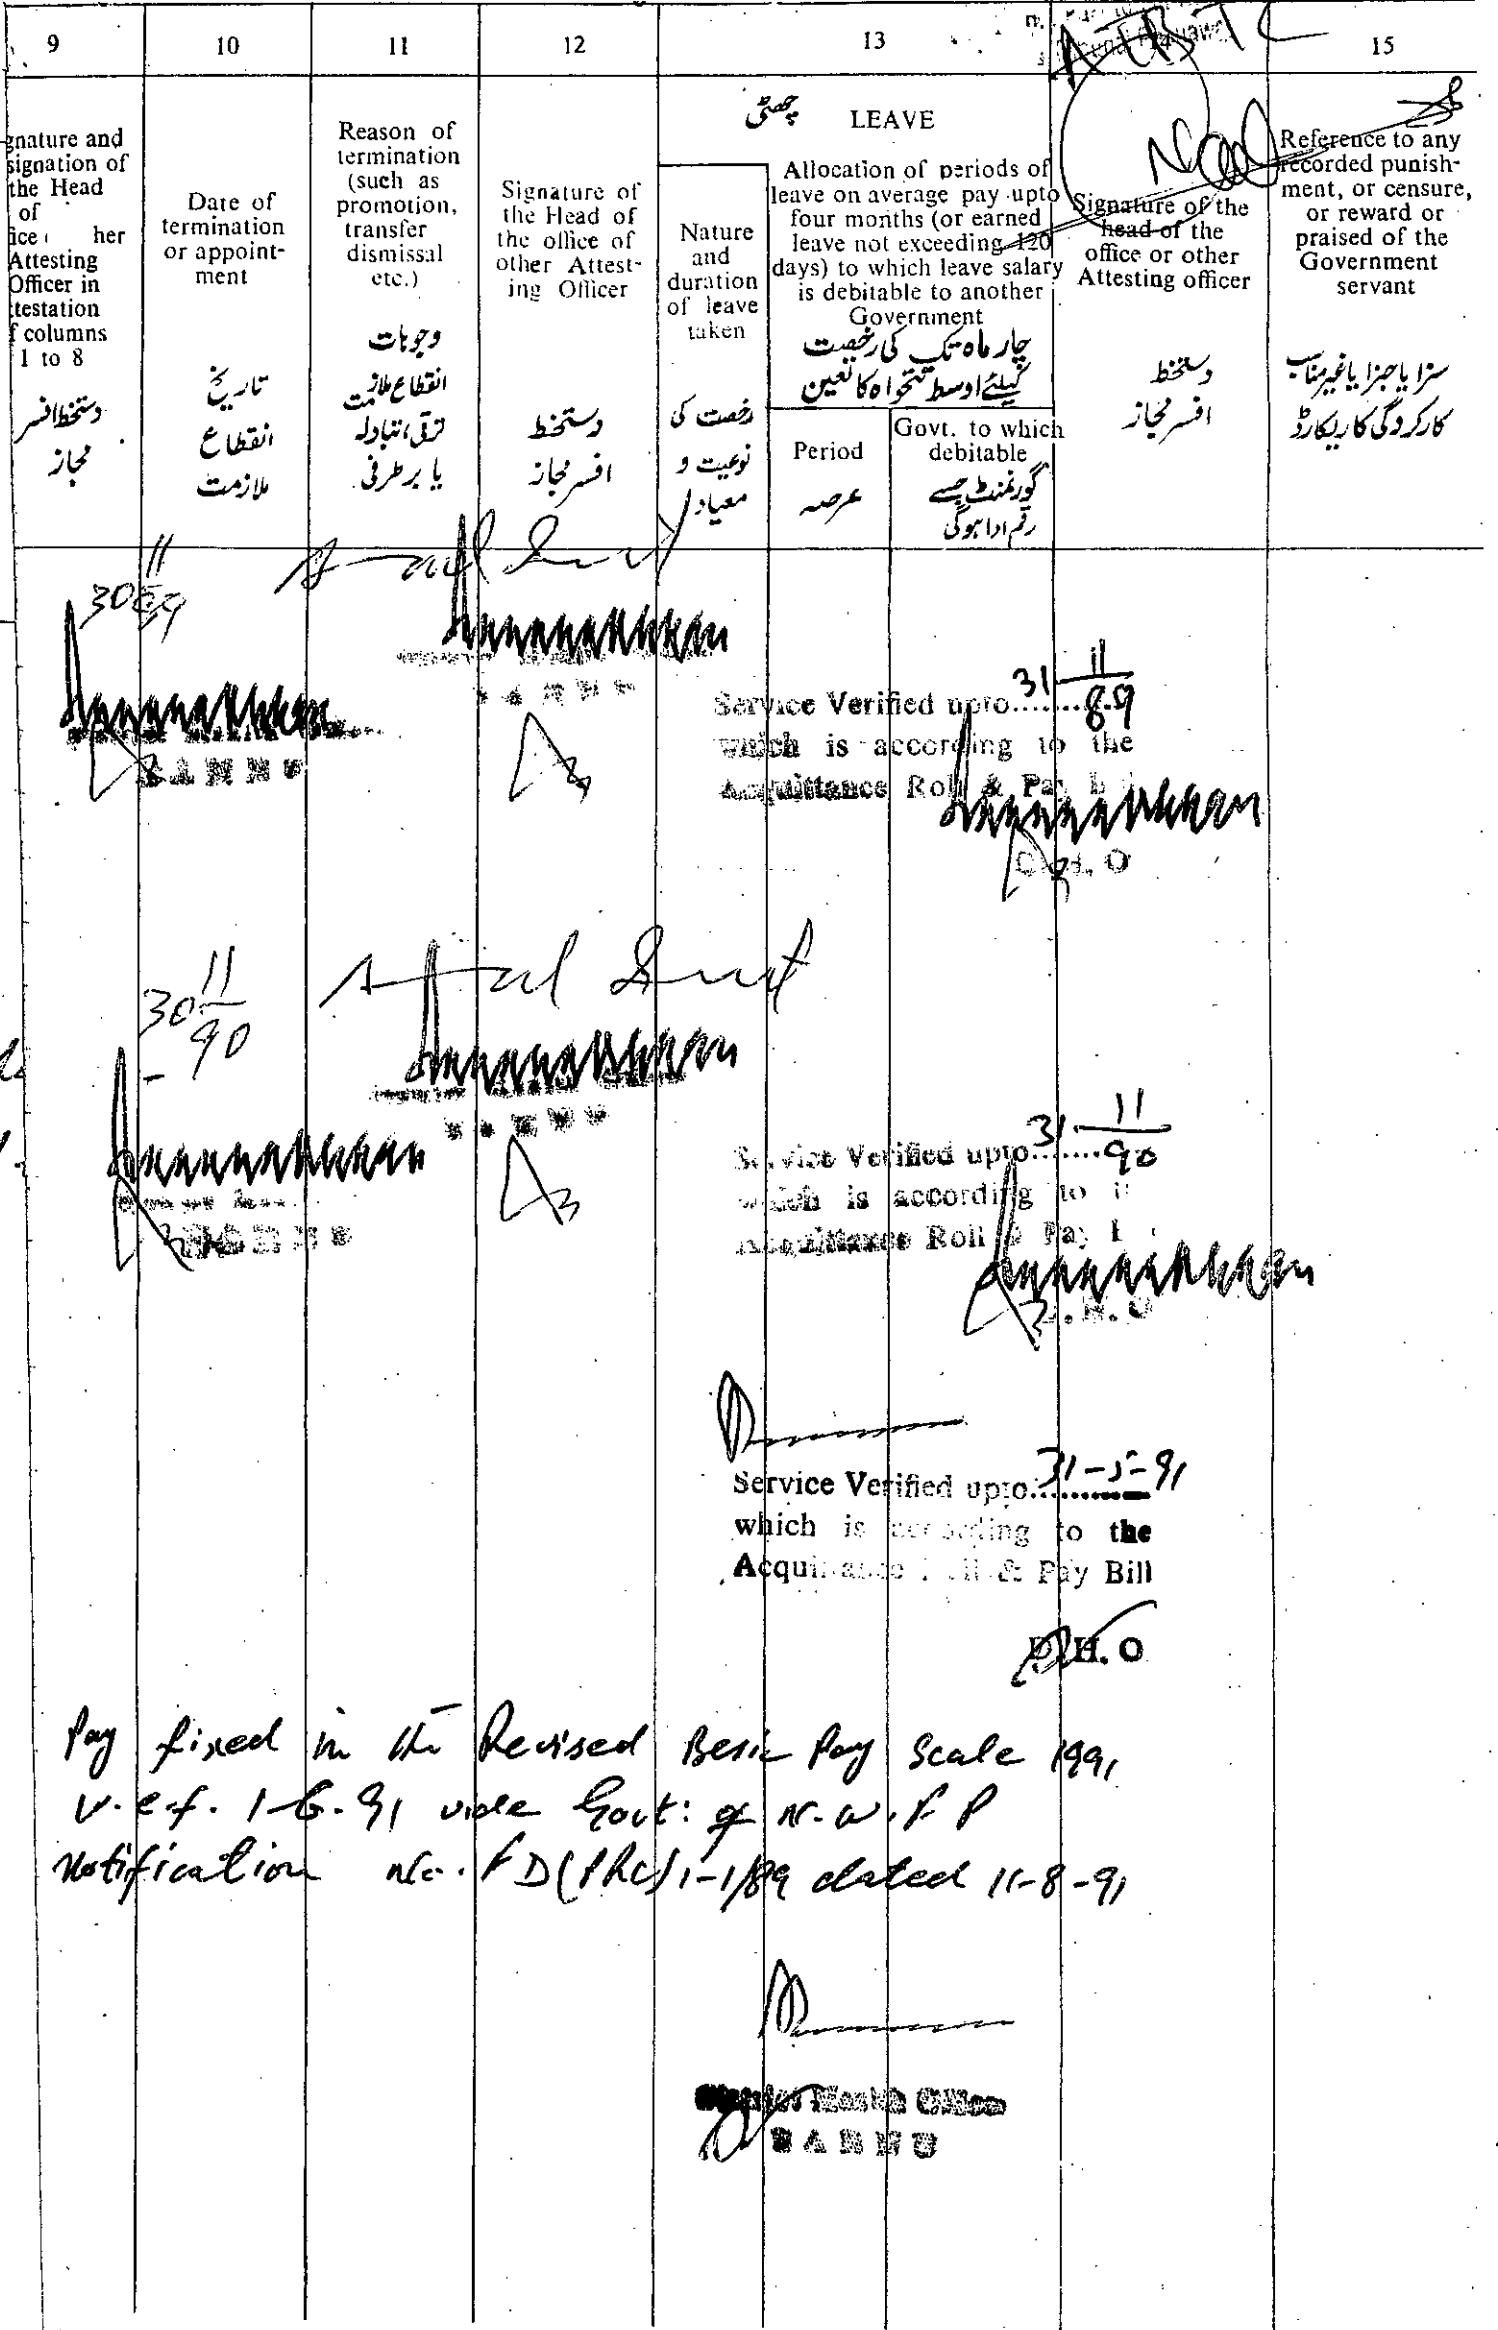 9
10
11
12
13
15
ATBTC
gnature and
signation of
the Head
of
ice her
Attesting
Officer in
testation
f columns
1 to 8
دستخط افسر
مجاز
Date of
termination
or appoint-
ment
تاریخ
انقطاع
ملازمت
Reason of
termination
(such as
promotion,
transfer
dismissal
etc.)
وجوہات
انقطاع ملازمت
ترقی، تبادلہ
یا برطرفی
Signature of
the Head of
the office of
other Attest-
ing Officer
دستخط
افسر مجاز
چھٹی LEAVE
Nature
and
duration
of leave
taken
رخصت کی
نوعیت و
معیاد
Allocation of periods of
leave on average pay upto
four months (or earned
leave not exceeding 120
days) to which leave salary
is debitable to another
Government
چار ماہ تک کی رخصت
کیلئے اوسط تنخواہ کا تعین
Period
عرصہ
Govt. to which
debitable
گورنمنٹ جسے
رقم ادا ہوگی
Signature of the
head of the
office or other
Attesting officer
دستخط
افسر مجاز
Reference to any
recorded punish-
ment, or censure,
or reward or
praised of the
Government
servant
سزا یا جزا یا غیر مناسب
کارکردگی کا ریکارڈ
30 11/89
Service Verified upto 31 11/89
which is according to the
Acquittance Roll & Pay
30 11/90
BANNU
Service Verified upto 31 11/90
which is according to
Acquittance Roll & Pay
D.H.O
Service Verified upto 31-5-91
which is according to the
Acquittance Roll & Pay Bill
D.H.O
Pay fixed in the Revised Besic Pay Scale 1991
w.e.f. 1-6-91 vide Govt: of N.W.F P
Notification No. FD(PRC)1-1/89 dated 11-8-91
District Health Officer
BANNU